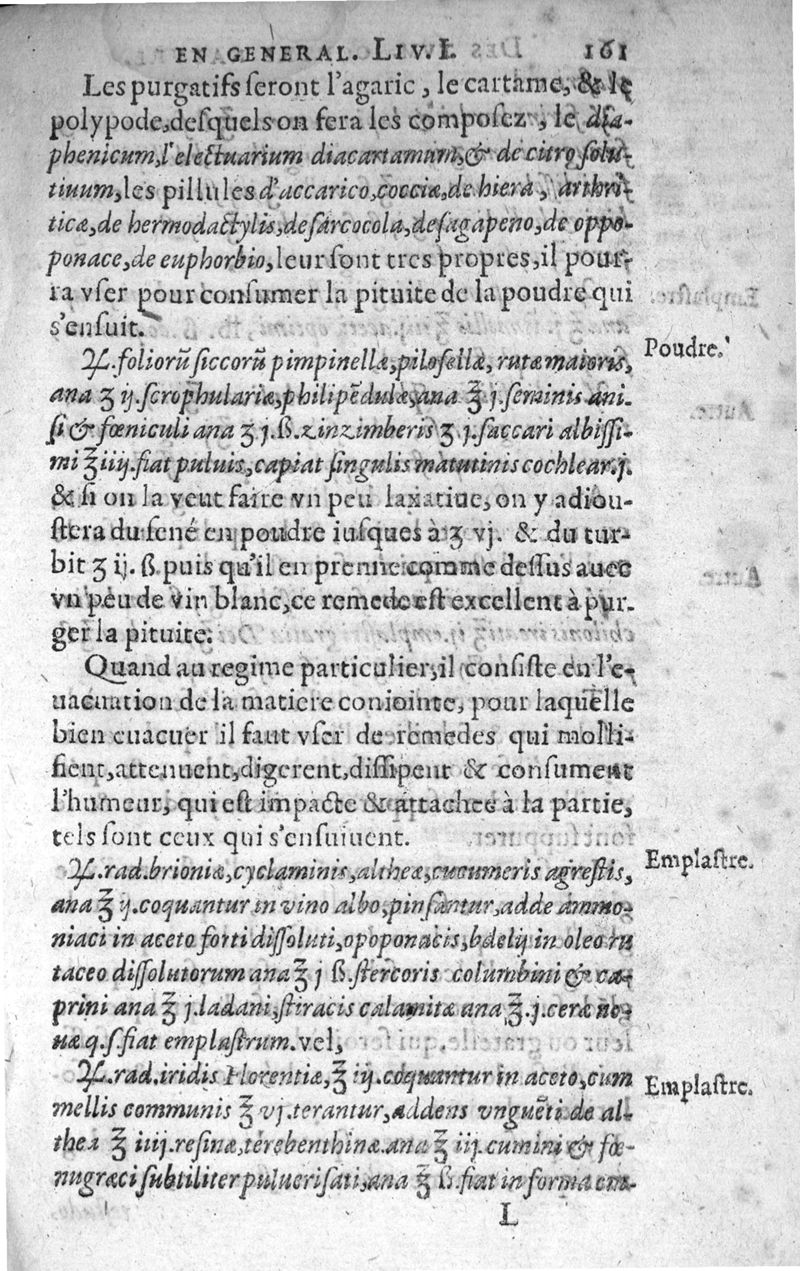 EN GENERAL. LIV. I. 161
Les purgatifs ſeront l'agaric, le cartame, & le
polypode, deſquels on fera les compoſez, le dia-
phenicum, l'electuarium diacartamum, & de citro ſolu-
tiuum, les pillules d'accarico, cocciæ, de hiera, arthri-
ticæ, de hermodactylis, de ſarcocola, de ſagapeno, de oppo-
ponace, de euphorbio, leur ſont tres propres, il pour-
ra vſer pour conſumer la pituite de la poudre qui
s'enſuit.
Poudre.
℞. folioru̅ ſiccoru̅ pimpinellæ, piloſellæ, rutæ maioris,
ana ʒ ij. ſcrophulariæ, philipe̅dulæ, ana ℥ j. ſeminis ani-
ſi & fœniculi ana ʒ j. ß. zinzimberis ʒ j. ſaccari albiſſi-
mi ℥ iiij. fiat puluis, capiat ſingulis matutinis cochlear. j.
& ſi on la veut faire vn peu laxatiue, on y adiou-
ſtera du ſené en poudre iuſques à ʒ vj. & du tur-
bit ʒ ij. ß. puis qu'il en prenne comme deſſus auec
vn peu de vin blanc, ce remede eſt excellent à pur-
ger la pituite.
Quand au regime particulier, il conſiſte en l'e-
uacuation de la matiere coniointe, pour laquelle
bien euacuer il faut vſer de remedes qui molli-
fient, attenuent, digerent, diſſipent & conſument
l'humeur, qui eſt impacte & attachee à la partie,
tels ſont ceux qui s'enſuiuent.
Emplaſtre.
℞. rad. brioniæ, cyclaminis, altheæ, cucumeris agreſtis,
ana ℥ ij. coquantur in vino albo, pinſantur, adde ammo-
niaci in aceto forti diſſoluti, opoponacis, bdelij in oleo ru
taceo diſſolutorum ana ℥ j ß. ſtercoris columbini & ca-
prini ana ℥ j. ladani, ſtiracis calamitæ ana ℥. j. ceræ no-
uæ q. ſ. fiat emplaſtrum. vel,
Emplaſtre.
℞. rad. iridis Florentiæ, ℥ iij. coquantur in aceto, cum
mellis communis ℥ vj. terantur, addens vngue̅ti de al-
thea ℥ iiij. reſinæ, terebenthinæ. ana ℥ iij. cumini & fœ-
nugræci ſubtiliter pulueriſati, ana ℥ ß. fiat in forma em-
L